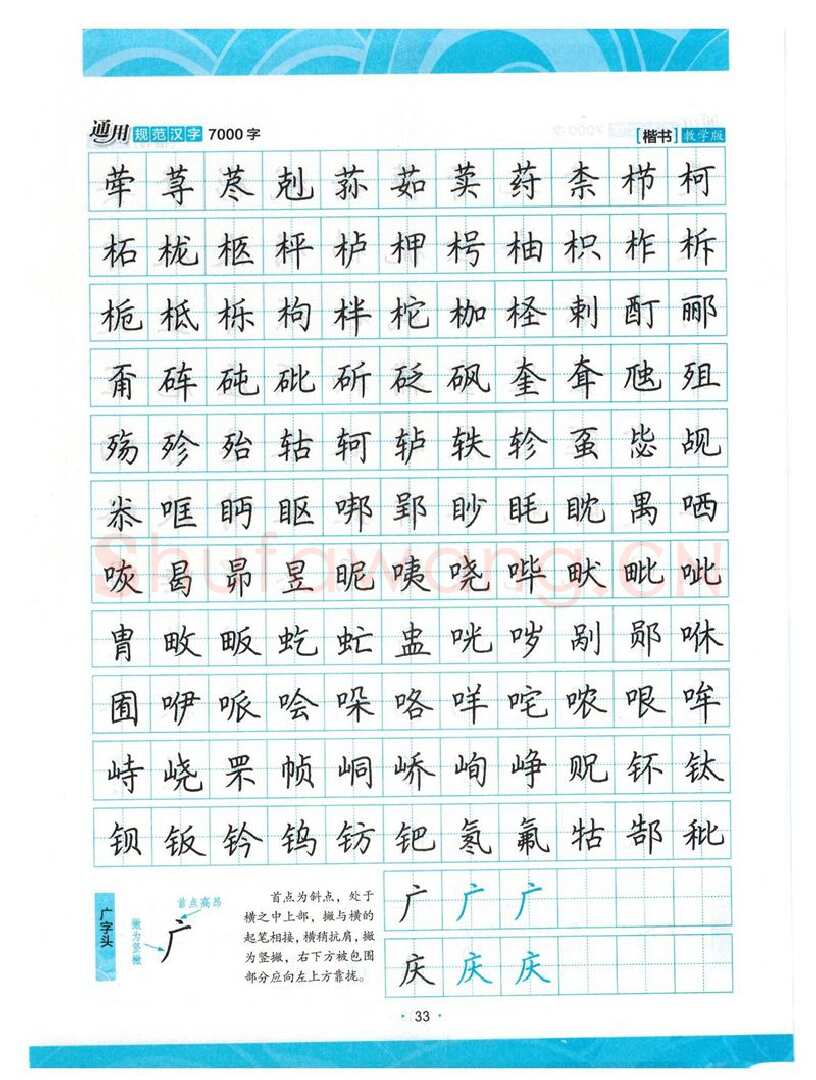 通用 规范汉字 7000字 [楷书] 教学版
荦 荨 荩 剋 荪 茹 荬 荮 柰 栉 柯
柘 栊 柩 枰 栌 柙 枵 柚 枳 柞 柝
栀 柢 栎 枸 柈 柁 枷 柽 剌 酊 郦
甭 砗 砘 砒 斫 砭 砜 奎 耷 虺 殂
殇 殄 殆 轱 轲 轳 轶 轸 虿 毖 觇
尜 哐 眄 眍 𠳐 郢 眇 眊 眈 禺 哂
咴 曷 昴 昱 昵 咦 哓 哔 畎 毗 呲
胄 畋 畈 虼 虻 盅 咣 哕 剐 郧 咻
囿 咿 哌 哙 哚 咯 咩 咤 哝 哏 哞
峙 峣 罘 帧 峒 峤 峋 峥 贶 钚 钛
钡 钣 钤 钨 钫 钯 氡 氟 牯 郜 秕
Shufawang.CN
广字头
首点高昂
撇为竖撇
广
首点为斜点，处于
横之中上部，撇与横的
起笔相接，横稍抗肩，撇
为竖撇，右下方被包围
部分应向左上方靠拢。
广 广 广
庆 庆 庆
· 33 ·